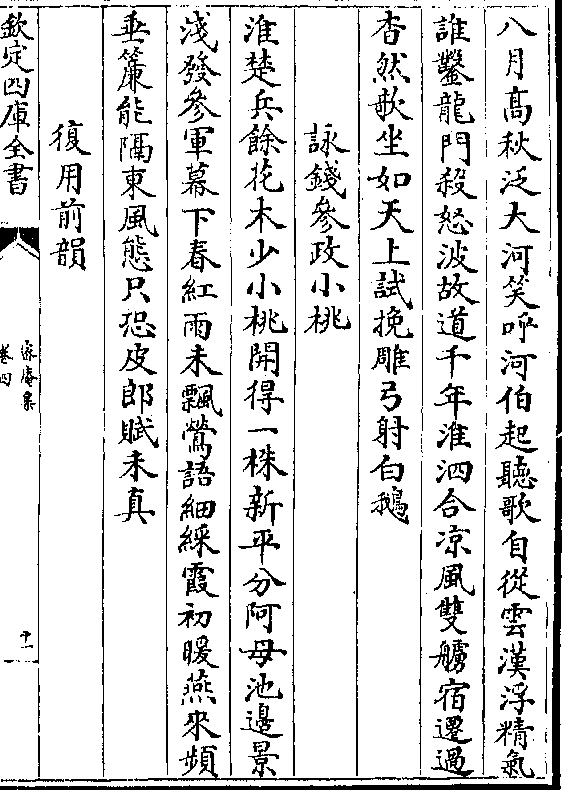 八月髙秋泛大河笑呼河伯起聽歌自從雲漢浮精氣
誰鑿龍門殺怒波故道千年淮泗合凉風雙艣宿遷過
杳然歌坐如天上試挽雕弓射白鵝
詠錢參政小桃
淮楚兵餘花木少小桃開得一株新平分阿母池邊景
淺發參軍幕下春紅雨未飄鶯語細綵霞初暖燕來頻
垂簾能隔東風態只恐皮郎賦未真
復用前韻
欽定四庫全書
卷四
十一